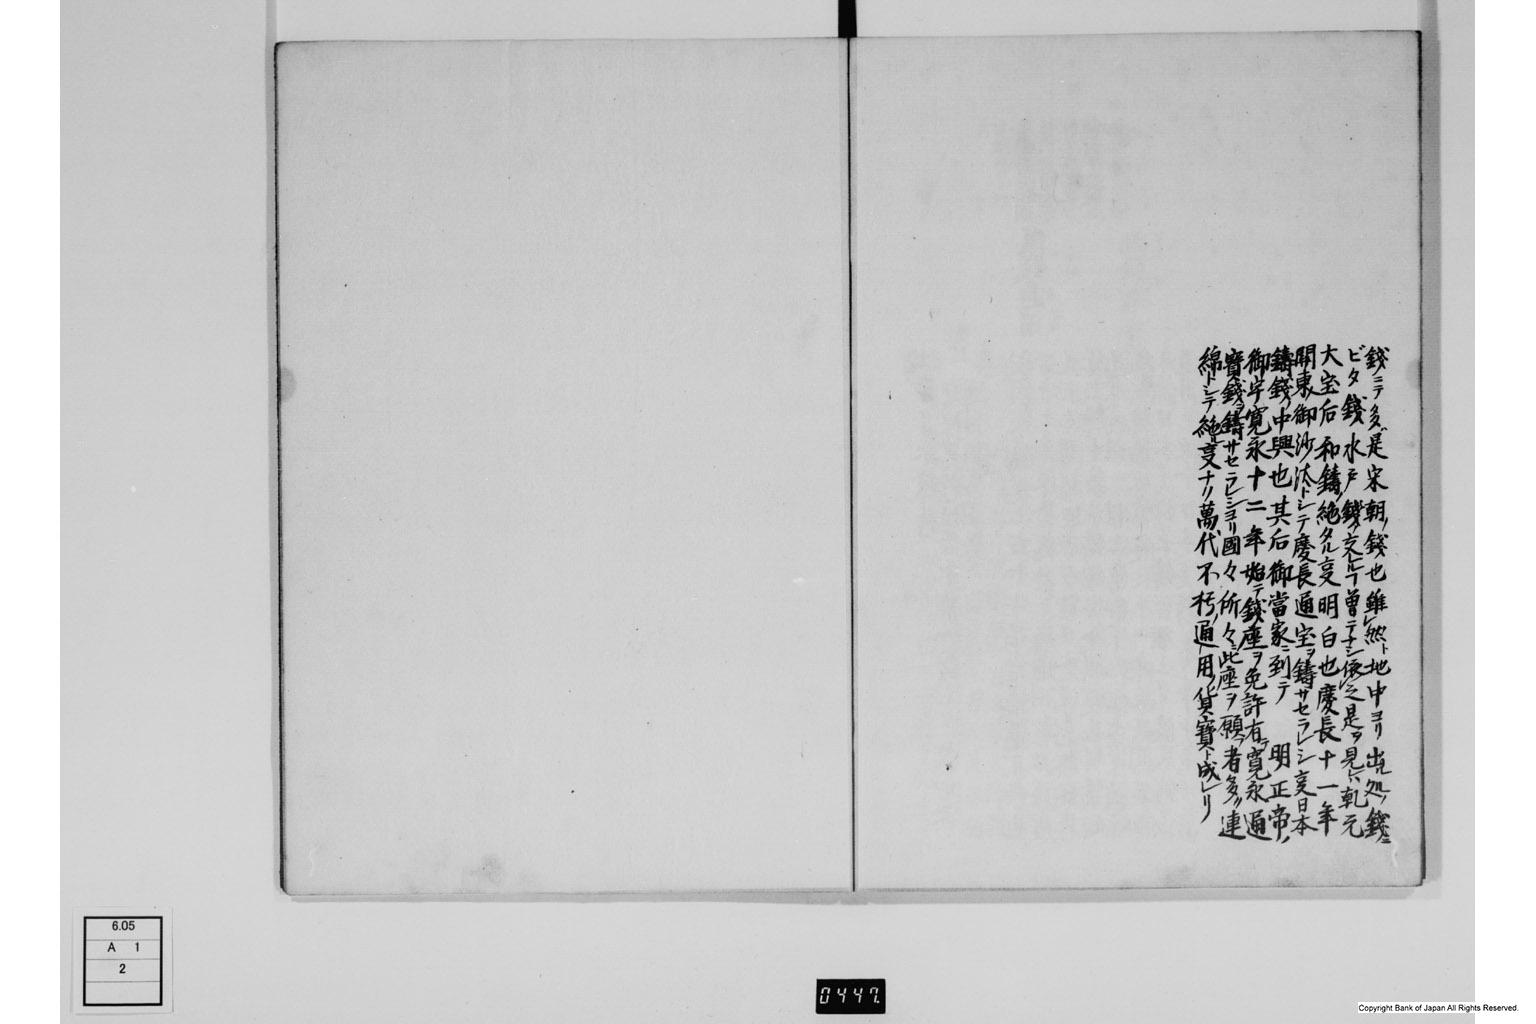 銭ニテ多シ是宋朝ノ銭也雖然ト地中ヨリ出ル処ノ銭ニ
ビタ銭水戸銭ノ交ルヿ曽テナシ依之是ヲ見レハ乾元
大宝后和鋳ノ絶タル叓明白也慶長十一年
関東御沙汰トシテ慶長通宝ヲ鋳サセラレシ叓日本
鋳銭ノ中興也其后御當家ニ到テ 明正帝ノ
御宇寛永十二年始テ銭座ヲ免許有テ寛永通
寳銭ヲ鋳サセラレシヨリ國々所々ニ此座ヲ願フ者多ク連
綿トシテ絶叓ナク萬代不朽ノ通用ノ貨寶ト成レリ
6.05
A 1
2
0447
Copyright Bank of Japan All Rights Reserved.